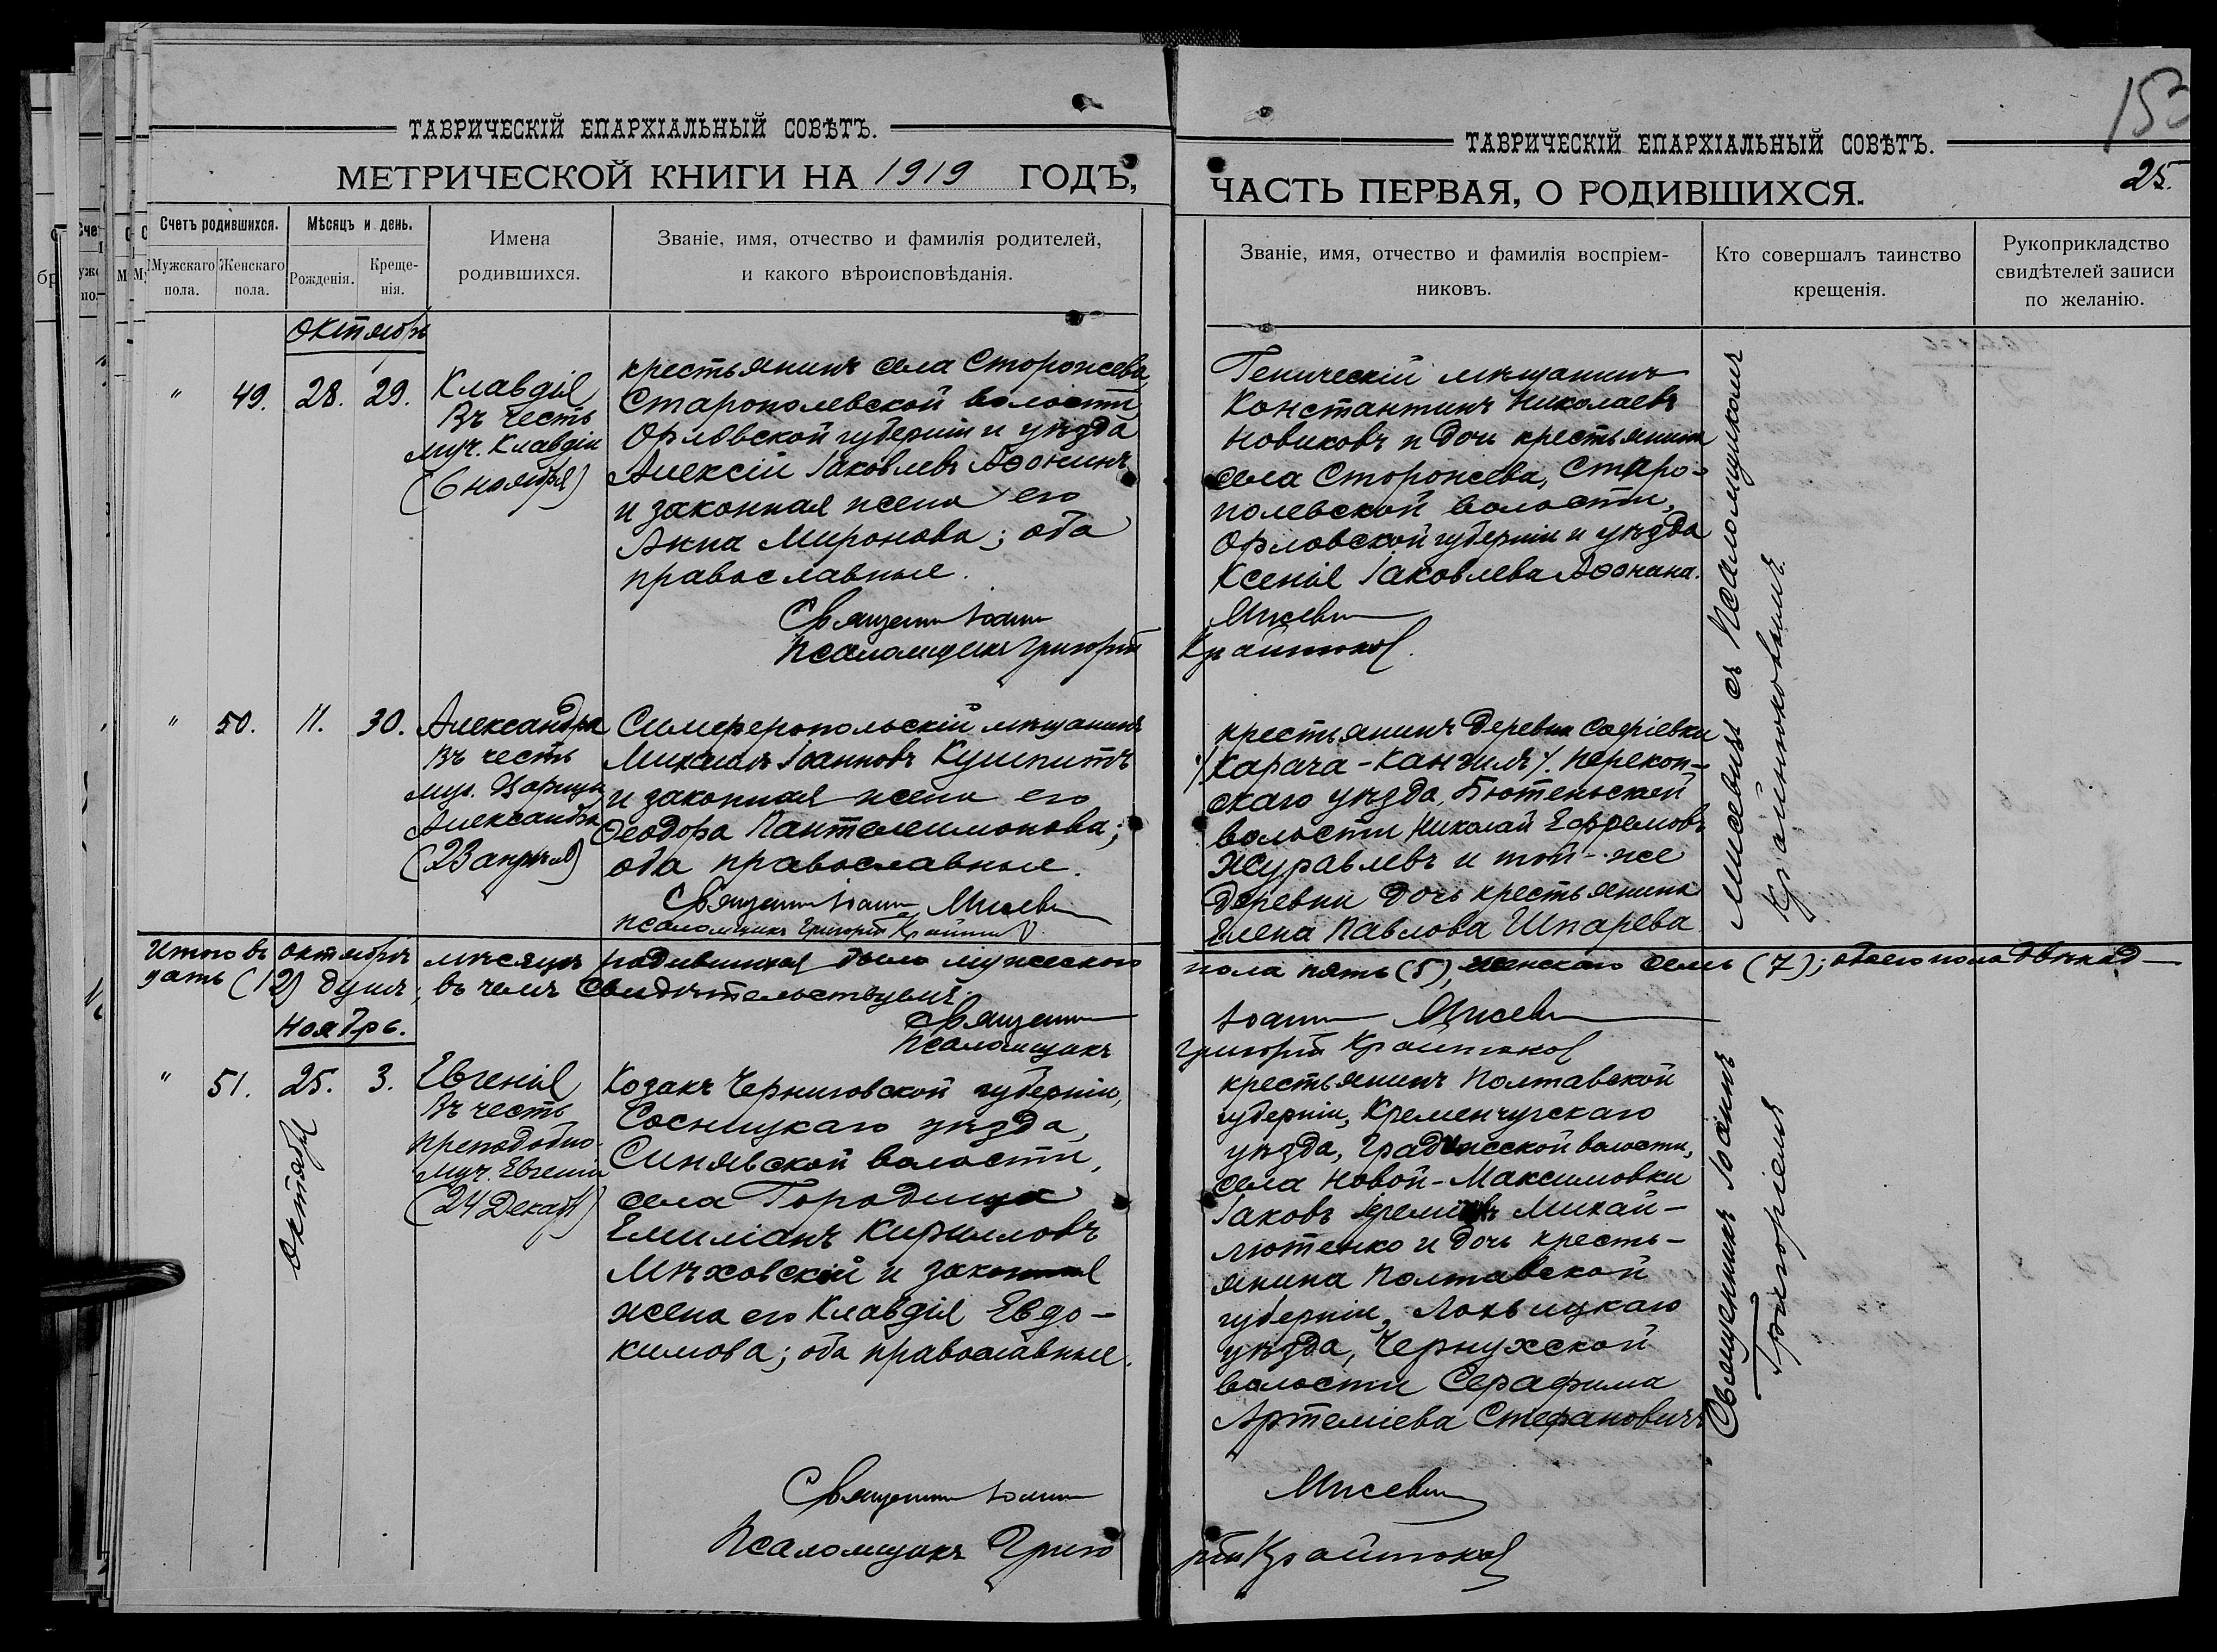 ТАВРИЧЕСКІЙ ЕПАРХІАЛЬНЫЙ СОВѢТЪ.
МЕТРИЧЕСКОЙ КНИГИ НА 1919 ГОДЪ,
Счетъ родившихся.
Мужскаго пола.
Женскаго пола.
Мѣсяцъ и день.
Рожденія.
Креще-
нія.
Имена
родившихся.
Званіе, имя, отчество и фамилія родителей,
и какого вѣроисповѣданія.
Октябрь
" 49. 28. 29.
Клавдія
Въ честь
муч. Клавдіи
(6 ноября)
крестьянинъ села Сторожева,
Старополевской волости,
Орловской губерніи и уѣзда
Алексій Іаковлевъ Аѳонинъ
и законная жена его
Анна Миронова; оба
православные.
Священникъ Іоаннъ
Псаломщикъ Григорій
" 50. 11. 30.
Александра
Въ честь
муч. Царицы
Александры
(23 апрѣля)
Симферопольскій мѣщанинъ
Михаилъ Іоанновъ Кушпитъ
и законная жена его
Ѳеодора Пантелеимонова;
оба православные.
Священникъ Іоаннъ Мисевичъ
Псаломщикъ Григорій
Итого въ октябрѣ мѣсяцѣ родившихся было мужескаго
дать (12) душъ, въ чемъ свидѣтельствуемъ:
Священникъ
Псаломщикъ
Ноябрь.
" 51. 25. 3.
Октября
Евгенія
Въ честь
преподобно-
муч. Евгеніи
(24 Декабр)
Козакъ Черниговской губерніи,
Сосницкаго уѣзда,
Синявской волости,
села Городища
Емиліанъ Кирилловъ
Мѣховскій и законная
жена его Клавдія Евдо-
кимова; оба православные.
Священникъ Іоаннъ
Псаломщикъ Григо
ТАВРИЧЕСКІЙ ЕПАРХІАЛЬНЫЙ СОВѢТЪ.
ЧАСТЬ ПЕРВАЯ, О РОДИВШИХСЯ.
25.
Званіе, имя, отчество и фамилія воспріем-
никовъ.
Кто совершалъ таинство
крещенія.
Рукоприкладство
свидѣтелей записи
по желанію.
Геническій мѣщанинъ
Константинъ Николаевъ
Новиковъ и дочь крестьянина
села Сторожева, Старо-
полевской волости,
Орловской губерніи и уѣзда
Ксенія Іаковлева Аѳонина.
Мисевичъ
крестьянинъ деревни Софіевки
/Карача-Кангилъ/. Перекоп-
скаго уѣзда, Бютеньской
волости Николай Ефремовъ
Журавлевъ и той-же
деревни дочь крестьянина
Елена Павлова Шпарева
Мисевичъ съ Псаломщикомъ
пола пять (5), женскаго семь (7); обоего пола двѣнад-
Іоаннъ Мисевичъ
Григорій
крестьянинъ Полтавской
губерніи, Кременчугскаго
уѣзда, Градижской волости,
села Новой-Максимовки
Іаковъ Михай-
лютенко и дочь кресть-
янина Полтавской
губерніи, Лохвицкаго
уѣзда, Чернухской
волости Серафима
Артеміева Стефановичъ
Священникъ Іоаннъ
Григоріемъ
Мисевичъ
рій